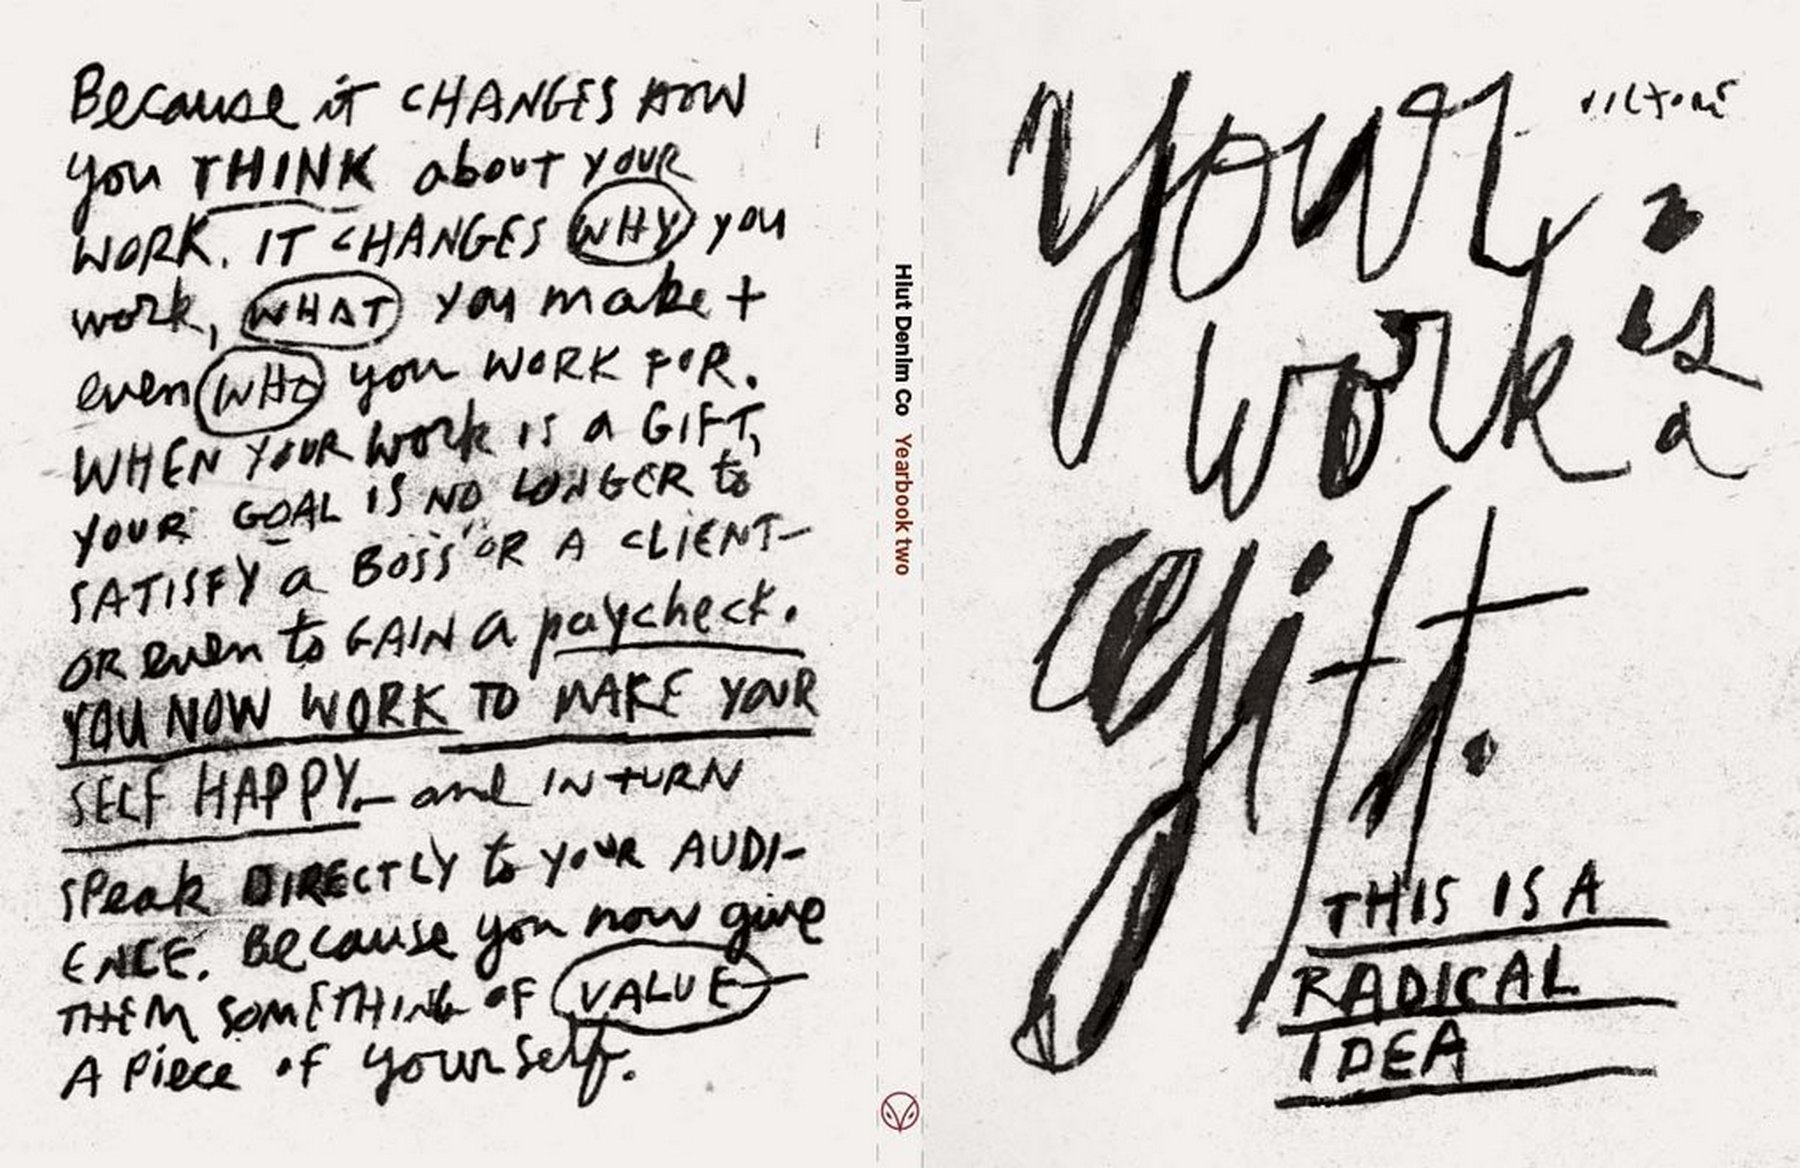 Because it CHANGES HOW
you THINK about YOUR
WORK. IT CHANGES WHY you
work, WHAT you make +
even WHO you WORK FOR.
WHEN YOUR work is a GIFT,
YOUR GOAL IS NO LONGER to
SATISFY a "BOSS" OR A CLIENT—
OR even to GAIN a paycheck.
YOU NOW WORK TO MAKE YOUR
SELF HAPPY — and IN TURN
SPeak DIRECTLY to YOUR AUDI-
ENCE. Because you now give
THEM SOMETHING OF VALUE—
A Piece of yourself.
Hiut Denim Co Yearbook two
your
work
is
a
gift.
THIS IS A
RADICAL
IDEA